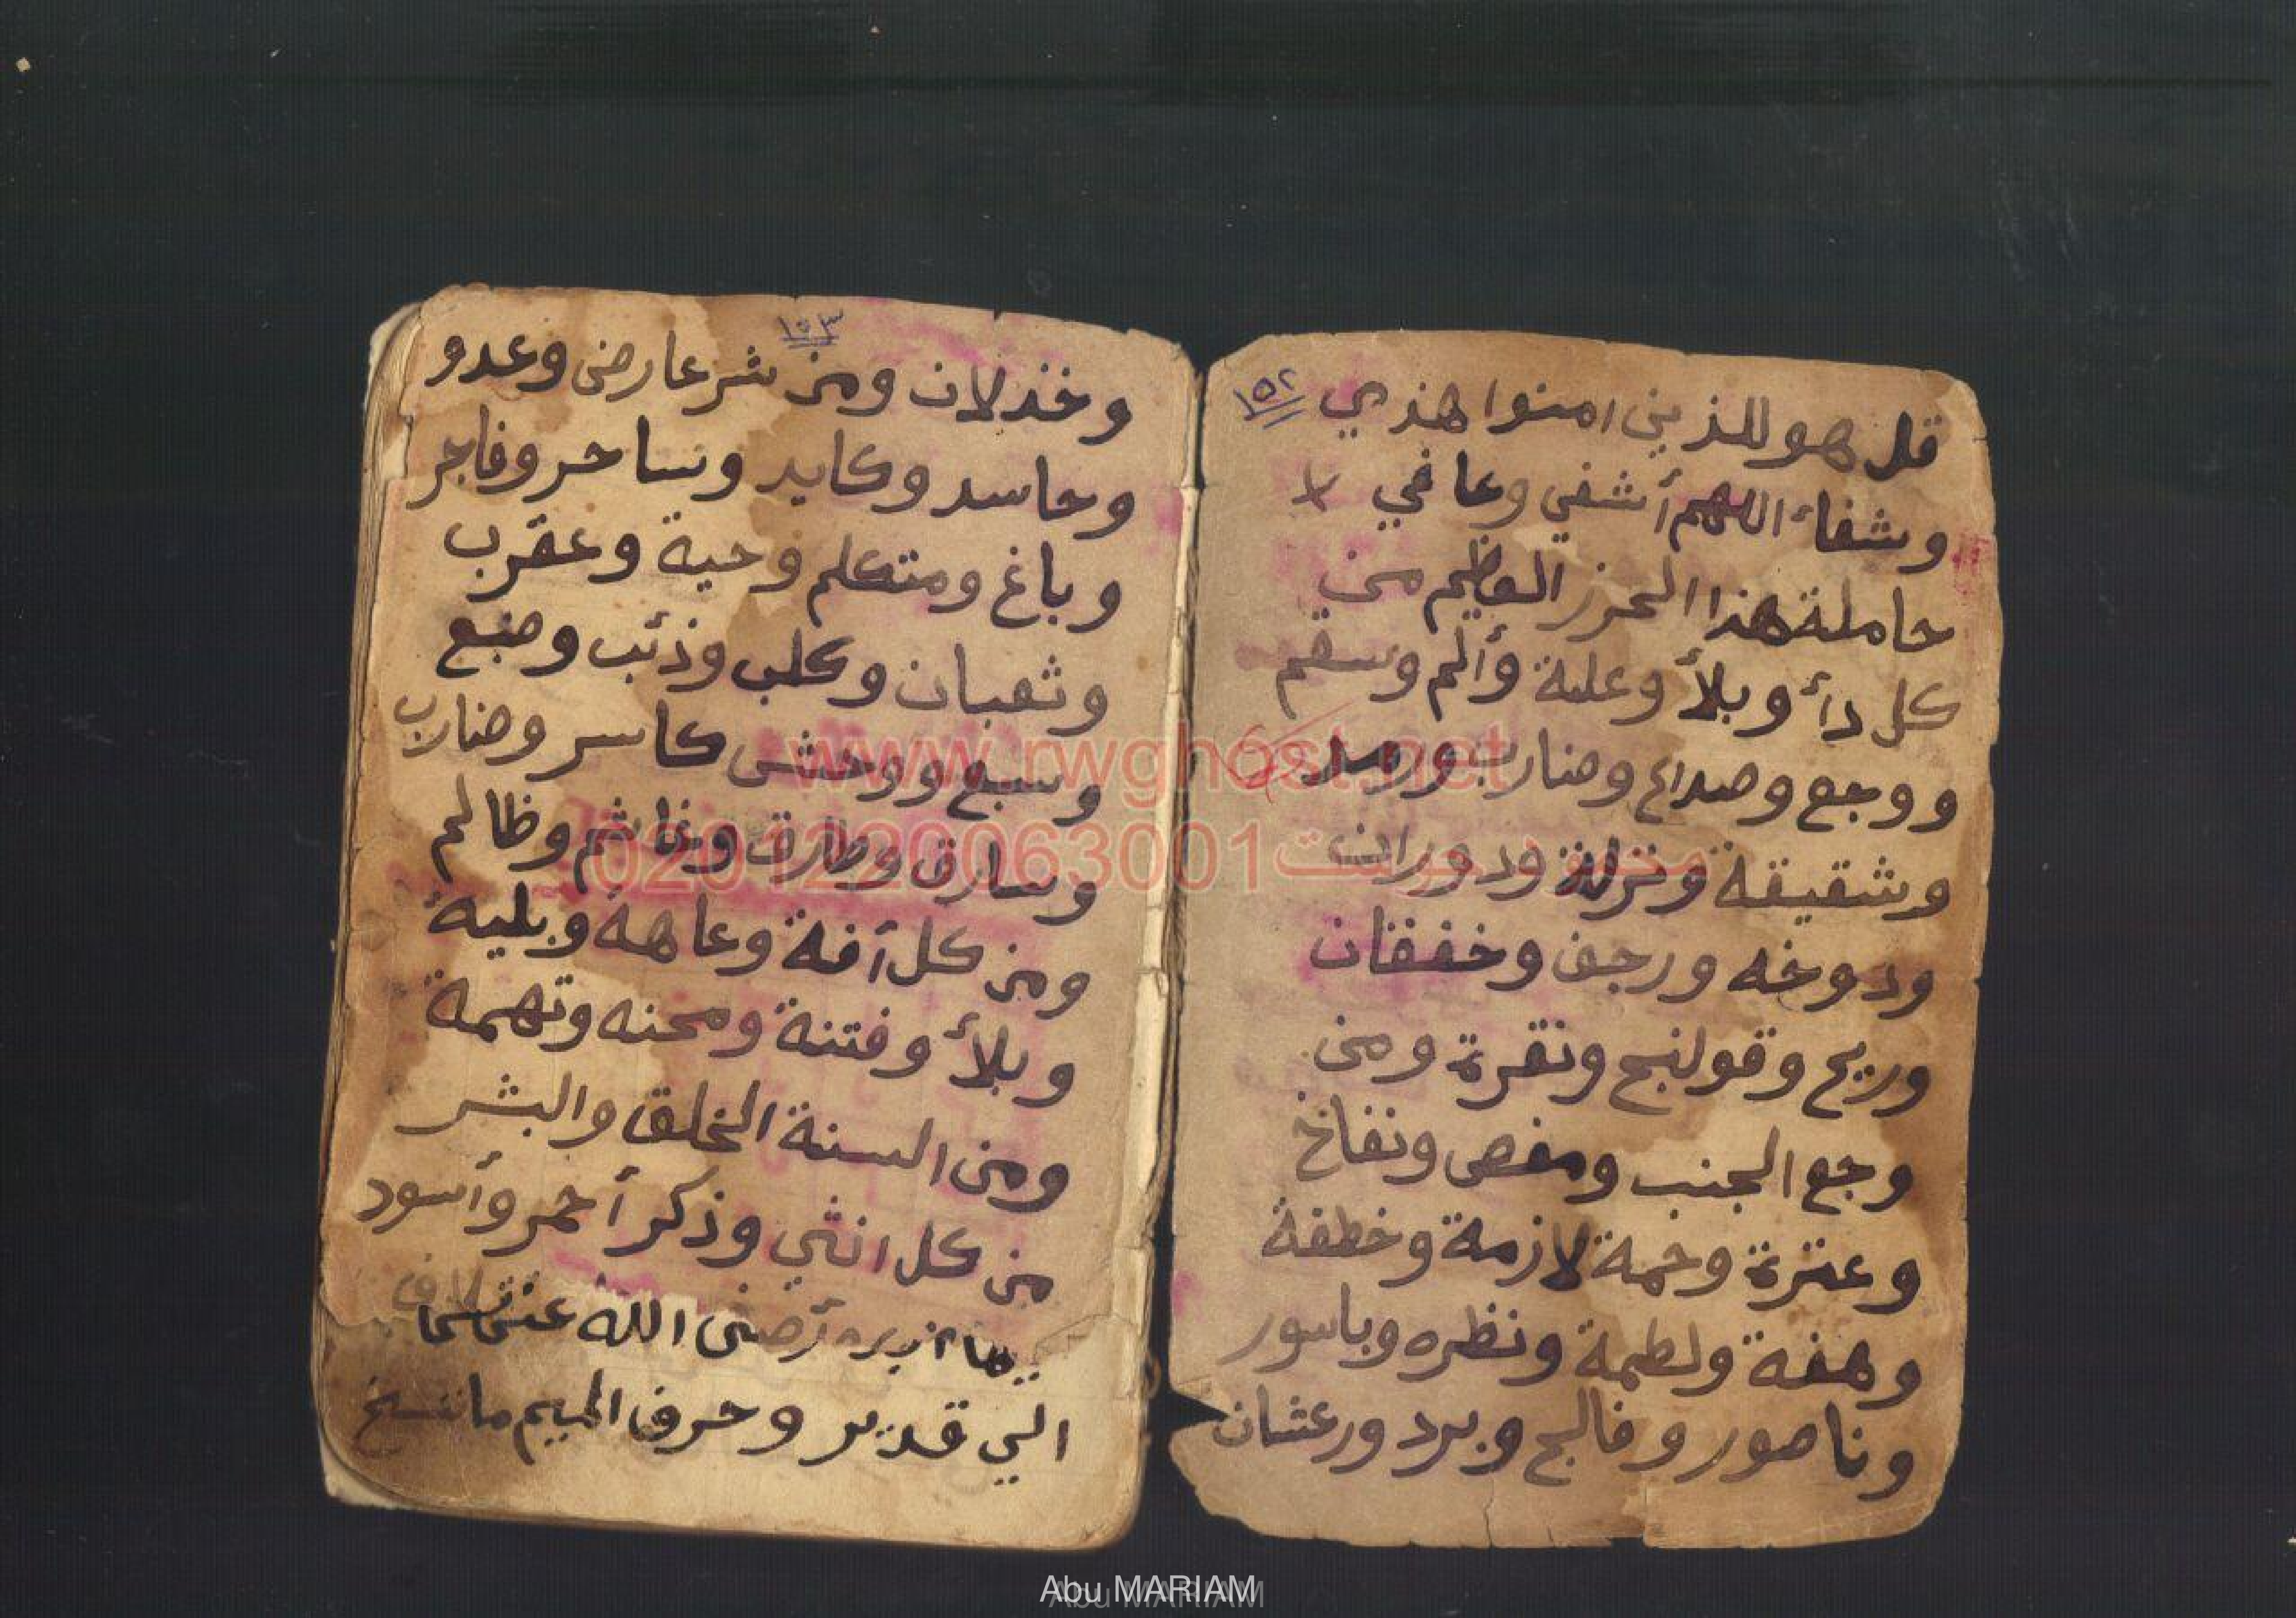 ١٥٢
قل هو للذين امنوا هذي
وشفاء اللهم أشفي وعافي
حاملة هذا الحرز العظيم من
كل دأء وبلأ وعلة وألم وسقم
ووجع وصداع وضارب ورمد
وشقيقة ونزلة ودوران
ودوخه ورجف وخفقان
وريح وقولنج ونقرة ومن
وجع الجنب ومغص ونفاخ
وعترة وحمة لازمة وخطفة
وهفة ولطمة ونظره وباسور
وناصور وفالج وبرد ورعشان
١٥٣
وخذلان ومن شر عارض وعدو
وحاسد وكايد وساحر وفاجر
وباغ ومتكلم وحية وعقرب
وثعبان وكلب وذئب وضبع
وسبع ووحش كاسر وضارب
وسارق وطارق وغاشم وظالم
ومن كل أفة وعاهة وبلية
وبلأ وفتنة ومحنه وتهمة
ومن السنة الخلق والبشر
من كل انثي وذكر أحمر وأسود
الله
الي قدير وحرف الميم ما ننسخ
www.rwghost.net
0201220063001
Abu MARIAM